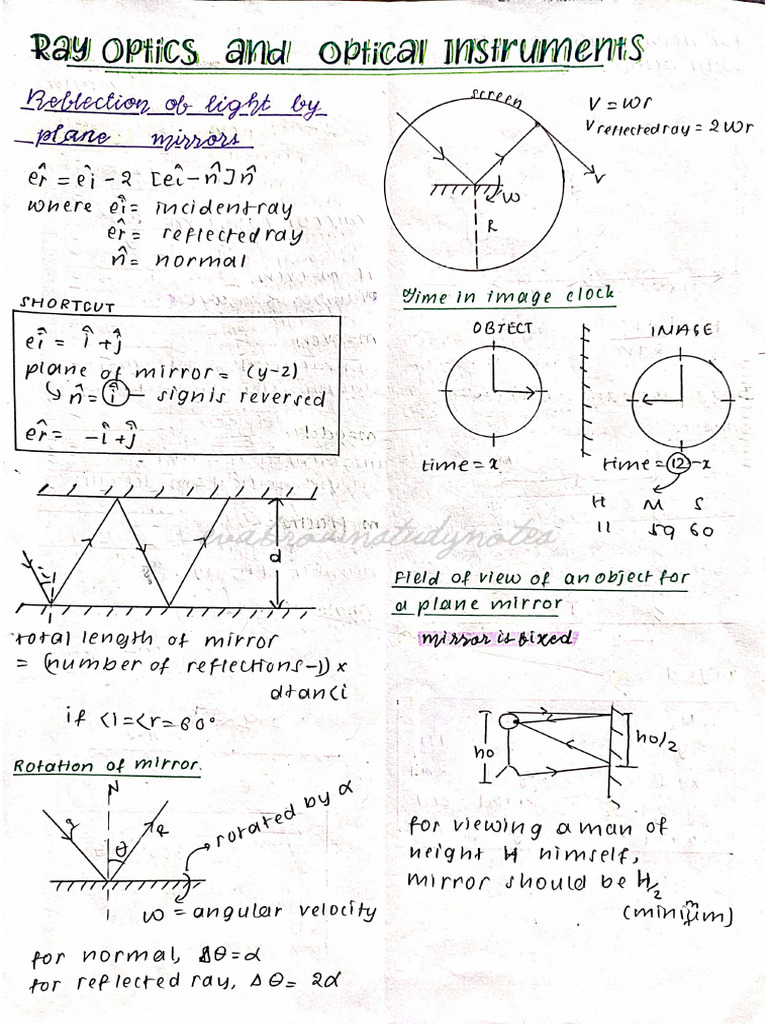 Ray Optics and Optical Instruments
Reflection of light by
plane mirrors
êr = êi - 2 [êi - n̂] n̂
where êi = incident ray
êr = reflected ray
n̂ = normal
SHORTCUT
êi = î + ĵ
plane of mirror = (y-z)
n̂ = î - sign is reversed
êr = -î + ĵ
i
d
total length of mirror
= (number of reflections-1) x
dtan<i
if <i = <r = 60°
Rotation of mirror.
N
I
θ
R
rotated by α
ω = angular velocity
for normal, Δθ = α
for reflected ray, Δθ = 2α
screen
V = ωr
V reflected ray = 2ωr
V
ω
R
Time in image clock
OBJECT
IMAGE
time = x
time = 12 - x
H M S
11 59 60
wabrownstudynotes
Field of view of an object for
a plane mirror
mirror is fixed
ho
ho/2
for viewing a man of
height H himself,
mirror should be H/2
(minimum)